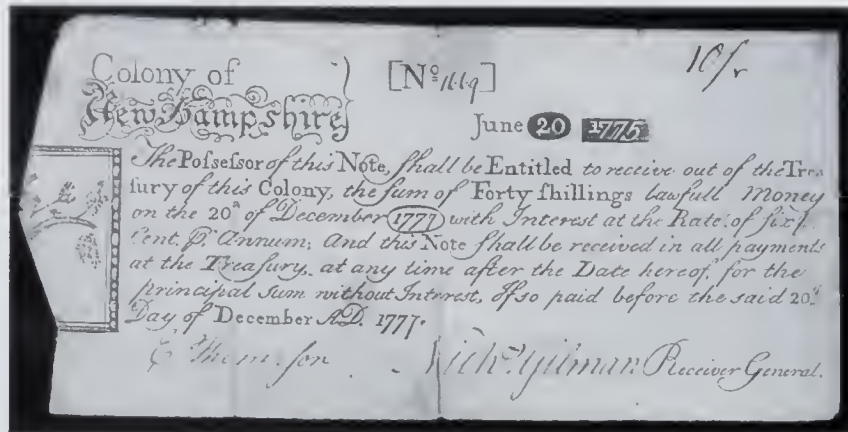 Colony of
New Hampshire
[No 1669]
10/
June 20 1775
The Possessor of this Note, shall be Entitled to receive out of the Trea
sury of this Colony, the sum of Forty shillings lawfull Money
on the 20th of December 1777 with Interest at the Rate of six
Cent. P. Annum; And this Note shall be received in all payments
at the Treasury, at any time after the Date hereof, for the
principal Sum without Interest, If so paid before the said 20th
Day of December A.D. 1777.
E Thompson
Nichs. Gilman Receiver General.